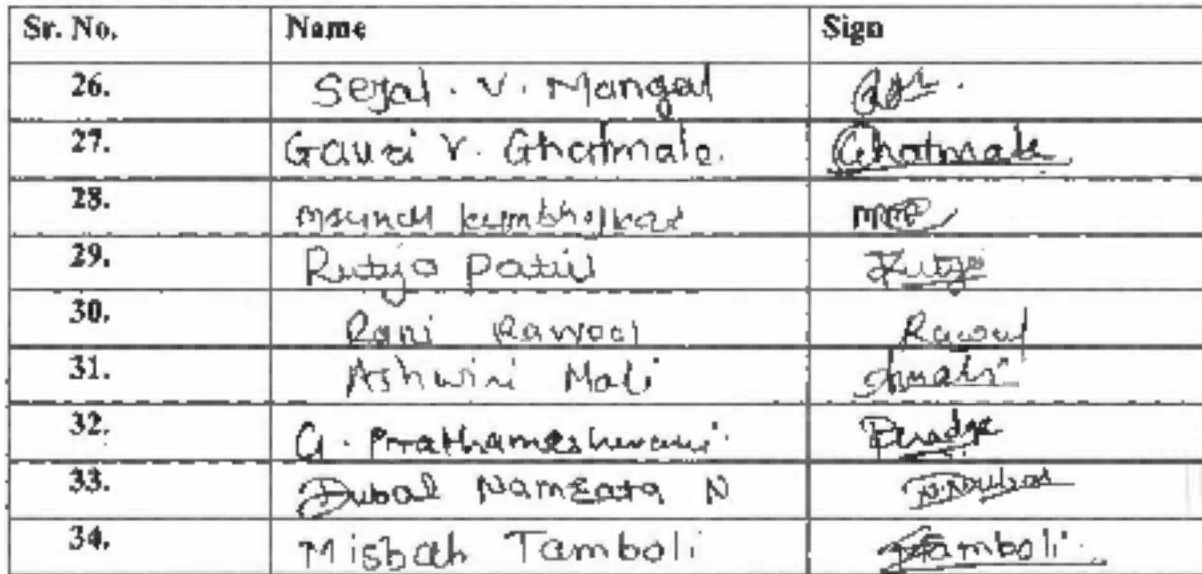 Sr. No. Name Sign
26. Sejal . V. Mangal
27. Gauri V. Ghatmale. Ghatmale
28. kumbhojkar
29. Rutuja Patil
30. Rani Rawool Rawool
31. Ashwini Mali
32. G. Prathameshwari
33. Dubal Namrata N
34. Misbah Tamboli Tamboli